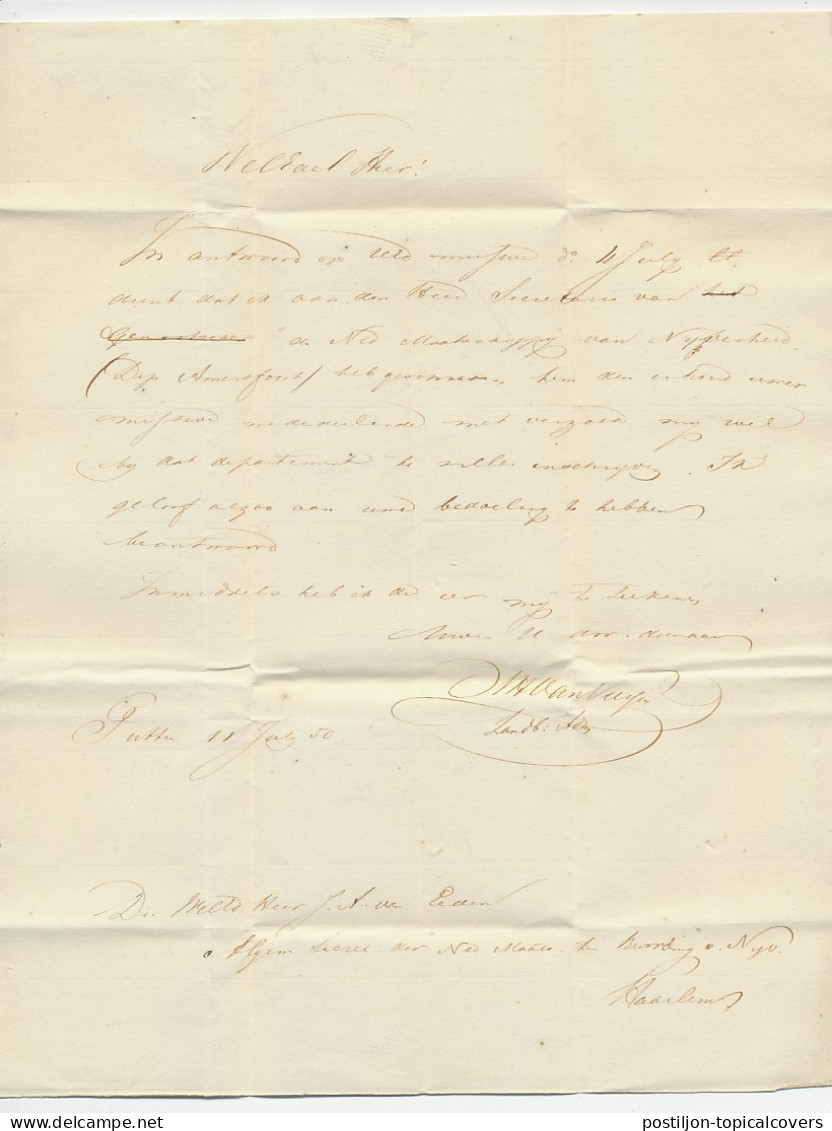 WelEdel Heer!
In antwoord op UEd missive d° 4 July ll.
dient dat ik aan den Heer Secretaris van het
Genootschap de Ned Maatschappij van Nijverheid
(Dep Amersfoort) heb geschreven hem den inhoud uwer
missive mededeelende met verzoek mij wel
bij dat departement te willen inschrijven. Ik
geloof alzoo aan uwe bedoeling te hebben
beantwoord
Inmiddels heb ik de eer mij te teekenen
U dv dienaar
Landb:
Putten 11 July 50
De WelEd Heer J. A. van Eeden
Algem Secret. der Ned Maats. ter v. Nijv.
Haarlem
postiljon-topicalcovers